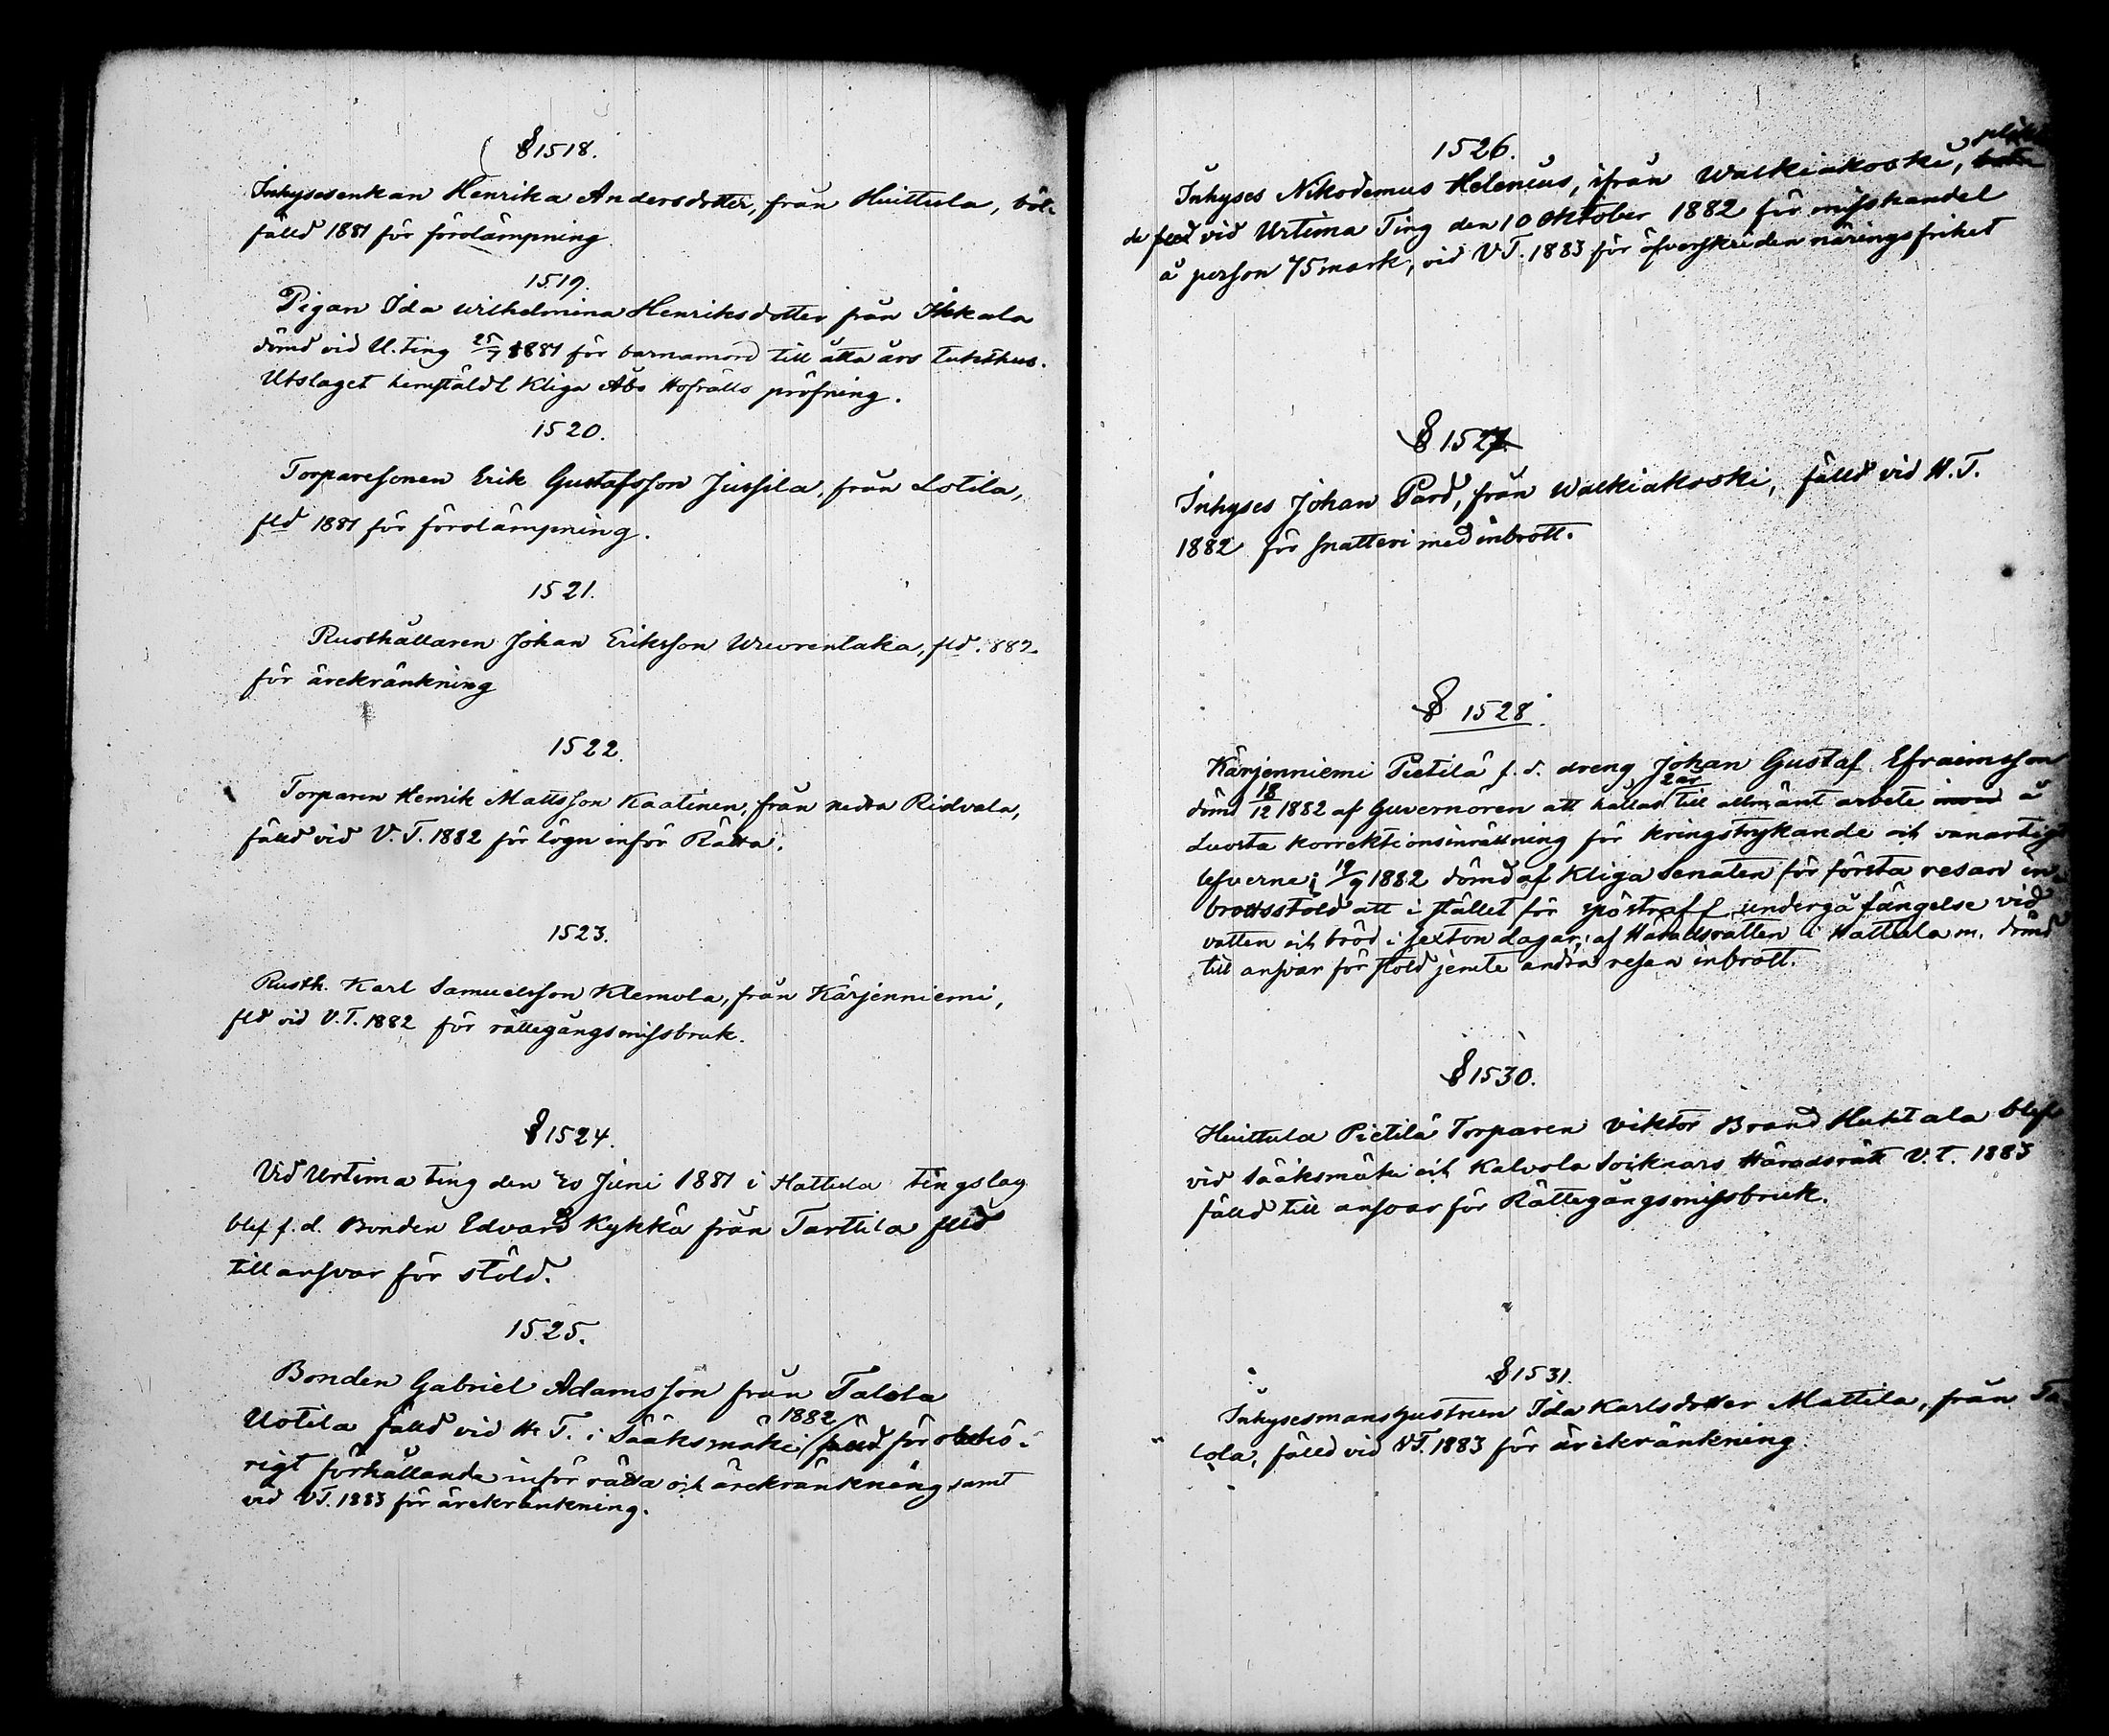 § 1518.
Inhysesenkan Henrika Andersdotter, från Huittula, böt-
fälld 1881 för förolämpning
1519.
Pigan Ida Wilhelmina Henriksdotter från Ikkala
dömd vid U. ting 25/7 1881 för barnamord till åtta års tukthus.
Utslaget hemstäldt Kliga Åbo Hofrätts pröfning.
1520.
Torparesonen Erik Gustafsson Jussila, från Lotila,
fld 1881 för förolämpning.
1521.
Rusthållaren Johan Eriksson Wuorentaka, fld. 882
för ärekränkning
1522.
Torparen Henrik Mattsson Kaatinen, från nedra Ridvala,
fälld vid V. T. 1882 för lögn inför Rätta.
1523.
Rusth. Karl Samuelsson Klemola, från Kärjenniemi,
fld vid V. T. 1882 för rättegångsmissbruk.
§ 1524.
Vid Urtima ting den 20 Juni 1881 i Hattula tingslag
blef f. d. Bonden Edvard Kykkä från Tarttila flld
till ansvar för stöld.
1525.
Bonden Gabriel Adamsson från Talola
1882
Uotila fälld vid H. T. i Sääksmäki fälld för obehö-
rigt förhållande inför rätta och ärekränkning samt
vid VT. 1883 för ärekränkning.
1526.
Inhyses Nikodemus Helenius, ifrån Walkiakoski,
de vid Urtima Ting den 10 Oktober 1882 för misshandel
å person 75 mark, vid VT. 1883 för öfverskriden näringsfrihet
§ 1527.
Inhyses Johan Pard, från Walkiakoski, fälld vid H. T.
1882 för snatteri med inbrott.
§ 1528.
Kärjenniemi Pietilä f. d. dreng Johan Gustaf Efraimsson
2 år
dömd 18/12 1882 af Guvernören att hållas till allmänt arbete å
Luosta korrektionsinrättning för kringstrykande och vanartigt
lefverne; 19/9 1882 dömd af Kliga Senaten för första resan in-
brottsstöld att i stället för spöstraff undergå fängelse vid
vatten och bröd i sexton dagar; af Häradsrätten i Hattula m. dömd
till ansvar för stöld jemte andra resan inbrott.
§ 1530.
Huittula Pietilä Torparen Viktor Brand Huhtala blef
vid Sääksmäki och Kalvola Soiknars Häradsrätt V. T. 1883
fälld till ansvar för Rättegångsmissbruk.
§ 1531.
Inhysesmanshustrun Ida Karlsdotter Mattila, från Ta
lola, fälld vid VT. 1883 för ärekränkning